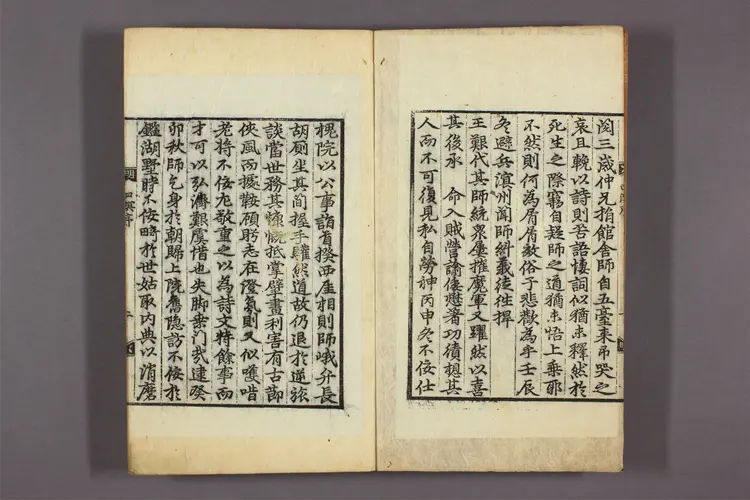 閱三歲仲兄捐館舍師自五臺来吊哭之
哀且輓以詩則苦語悽詞似猶未釋然於
死生之際窃自疑師之道猶未悟上乘耶
不然則何爲屑屑數俗于悲歡爲乎壬辰
冬避兵溟州聞師糾義徒徃捍
王艱代其師統衆屢摧魔軍又躍然以喜
其後承 命入賊營諭倭懋著功績想其
人而不可復見私自勞神丙申冬不佞仕
槐院以公事詣首揆西厓相則師峨弁長
胡厠坐其間握手驩然道故仍退於逆旅
談當世務其慷慨抵掌擘畫利害有古節
俠風而據鞍顧眄志在澄氛則又似嚄唶
老將不佞尤敬重之以爲詩文特餘事而
才可以弘濟艱虞惜也失脚桑門哉逮癸
卯秋師乞身於朝歸上院舊隐訪不佞於
鑑湖墅時不佞畸於世姑取內典以消磨